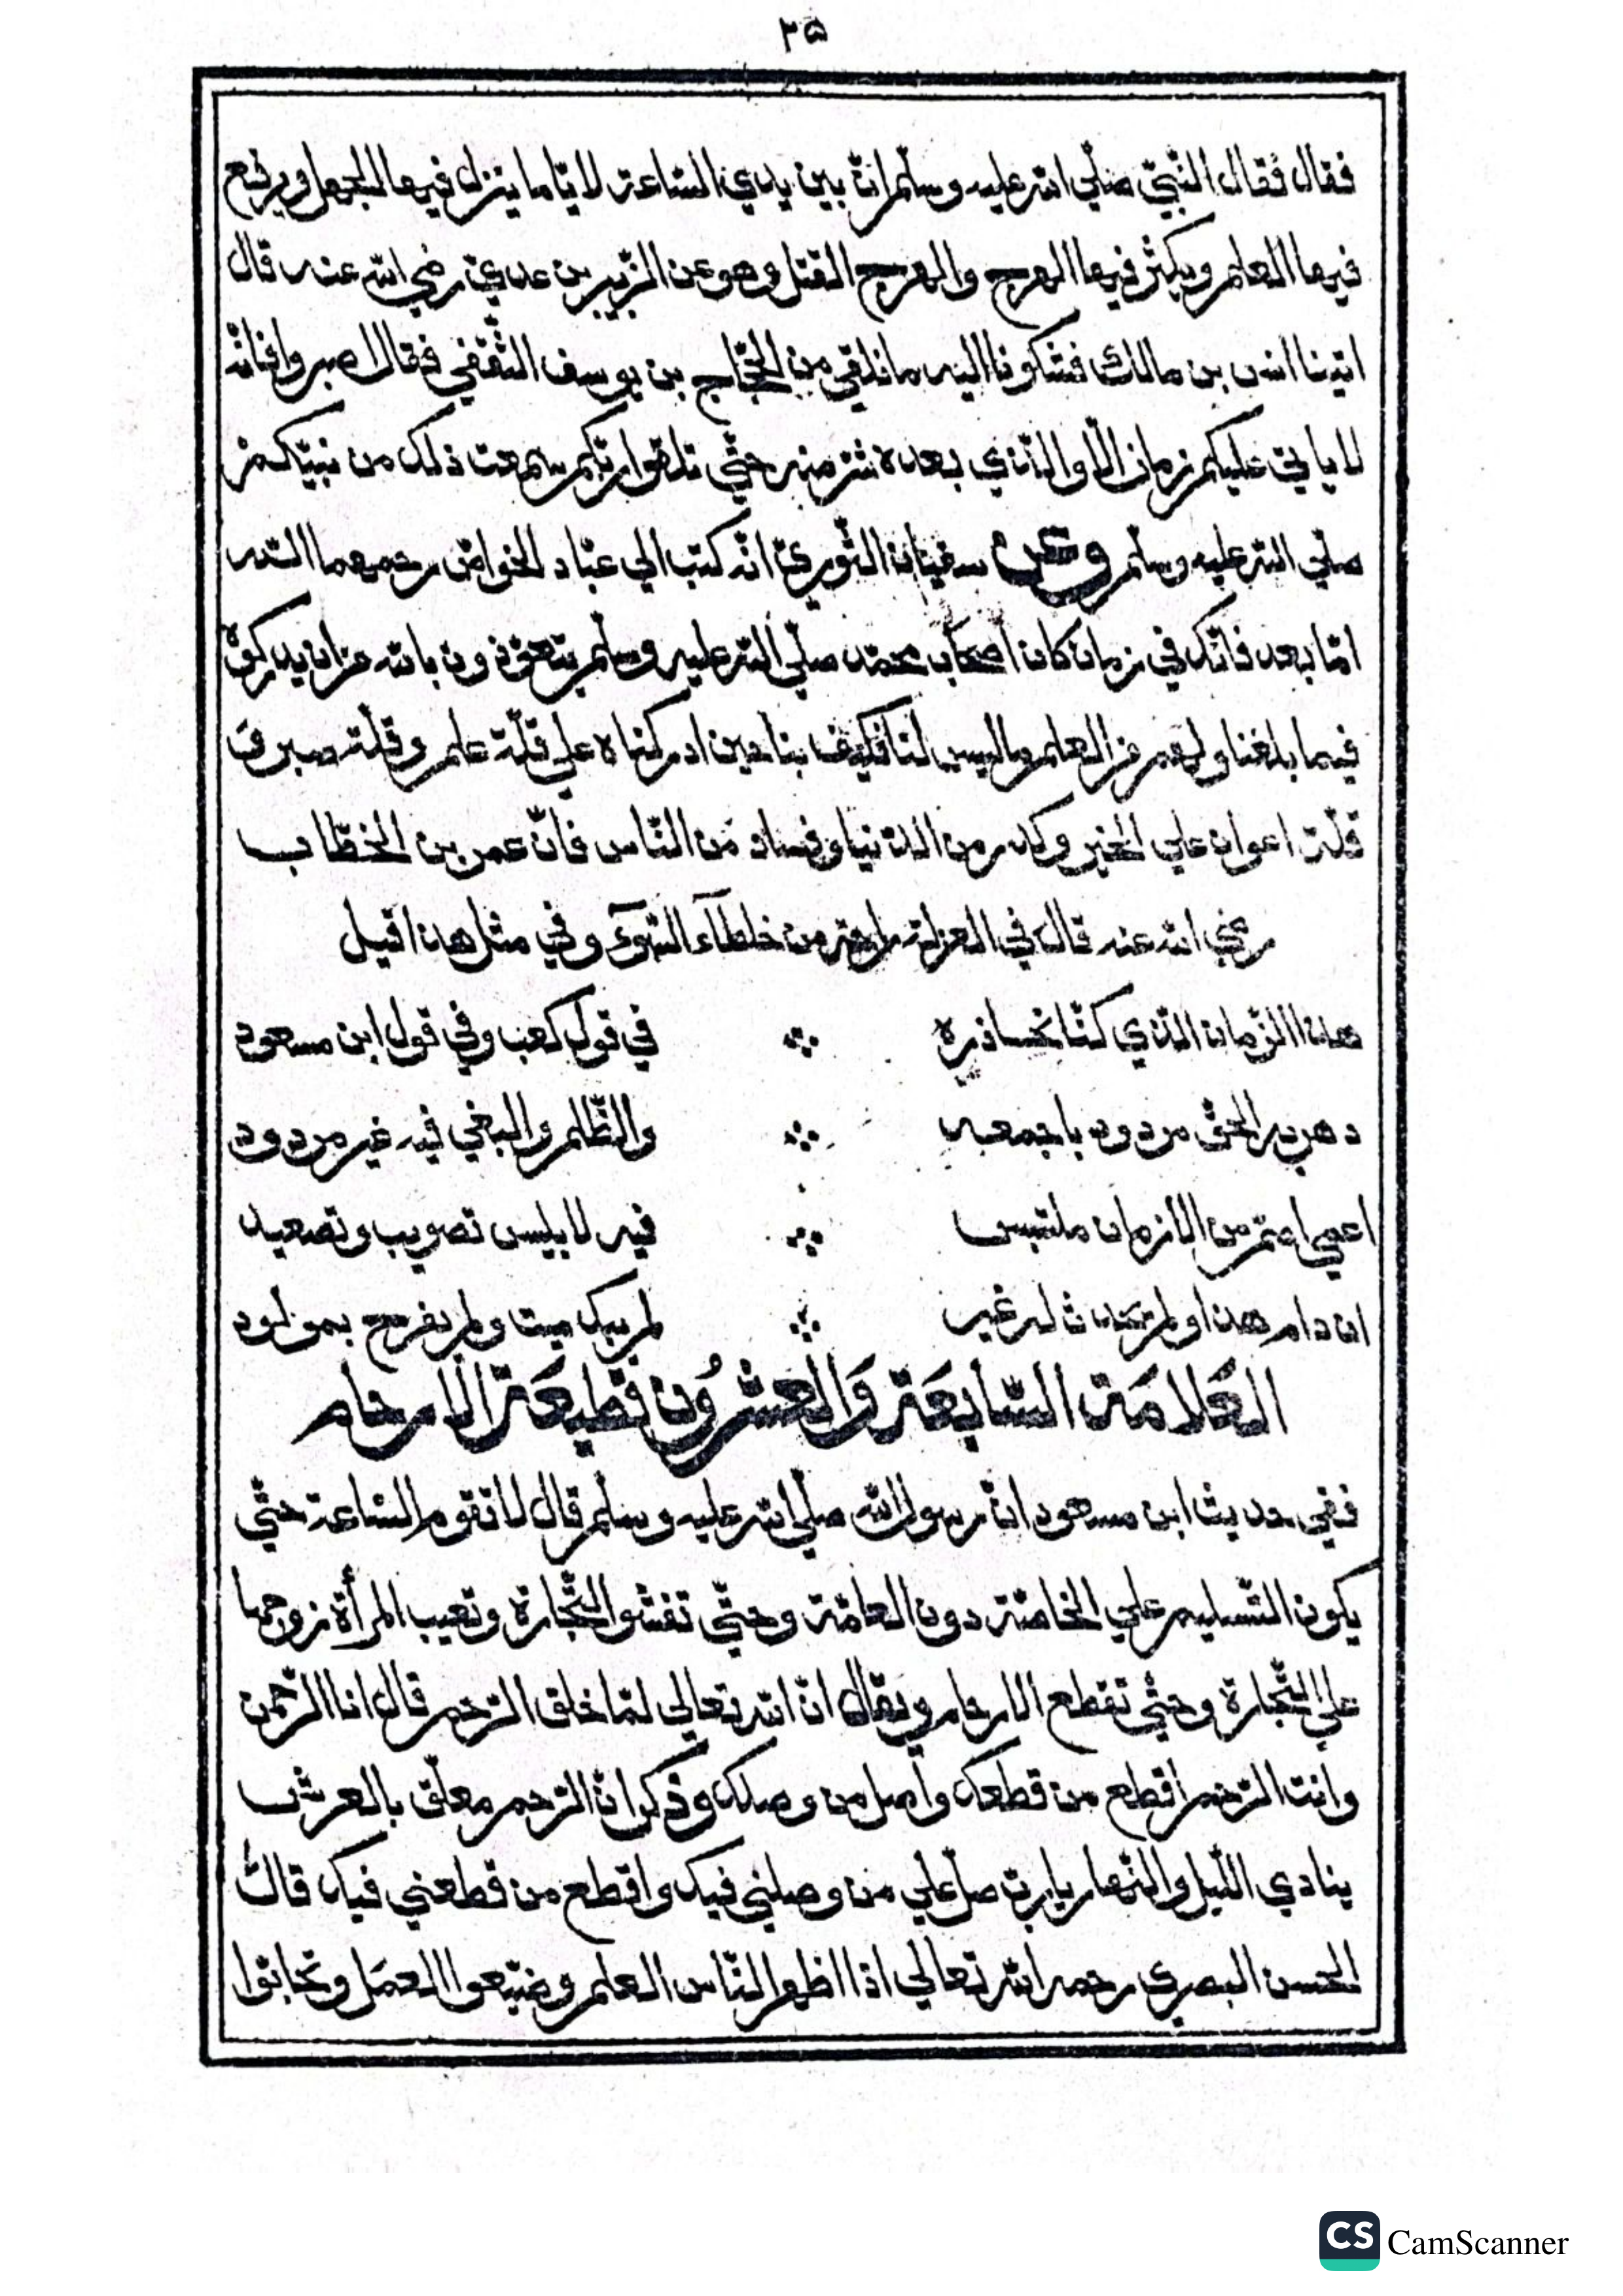 ٣٥
فقال فقال النّبيّ صلّي الله عليه وسلّم انّ بين يدي السّاعة لايّاما ينزل فيها الجهل ويرفع
فيها العلم ويكثر فيها الهرج والهرج القتل وهو عن الزّبير بن عديّ رضي الله عنه قال
اتينا انس بن مالك فشكونا اليه ما نلقي من الحجّاج بن يوسف الثّقفي فقال اصبروا فانّه
لا ياتي عليكم زمان الّا والّذي بعده شرّ منه حتّي تلقوا ربّكم سمعت ذلك من نبيّكم
صلّي الله عليه وسلّم وعن سفيان الثّوريّ انّه كتب الي عبّاد الخواصّ رحمهما الله
امّا بعد فانّك في زمان كان اصحاب محمّد صلّي الله عليه وسلّم يتعوّذون بالله من ان يدركوه
فيما بلغنا ولهم من العلم ما ليس لنا فكيف بنا حين ادركناه علي قلّة علم وقلّة صبر و
قلّة اعوان علي الخير وكدر من الدّنيا وفساد من النّاس فانّ عمر بن الخطّاب
رضي الله عنه قال في العزلة راحة من خلطآء السّوء وفي مثل هذا قيل
هذا الزّمان الّذي كنّا نحاذره في قول كعب وفي قول ابن مسعود
دهر به الحقّ مردود باجمعه والظّلم والبغي فيه غير مردود
اعمي اصمّ من الازمان ملتبس فيه لابليس تصويب وتصعيد
ان دام هذا ولم تحدث له غير لم يبك ميت ولم يفرح بمولود
العَلامَة السّابعَة وَالعشرُون قطيعَة الارحام
ففي حديث ابن مسعود انّ رسول الله صلّي الله عليه وسلّم قال لا تقوم السّاعة حتّي
يكون التّسليم علي الخاصّة دون العامّة وحتّي تفشو التّجارة وتعيب المرأة زوجها
علي التّجارة وحتّي تقطع الارحام ويقال انّ الله تعالي لمّا خلق الرّحم قال انا الرّحمن
وانت الرّحم اقطع من قطعك وأصل من وصلك وذكر انّ الرّحم معلّق بالعرش
ينادي اللّيل والنّهار يا ربّ صل علي من وصلني فيك واقطع من قطعني فيك قال
الحسن البصري رحمه الله تعالي اذا اظهر النّاس العلم وضيّعوا العمَل وتحابّوا
CS CamScanner